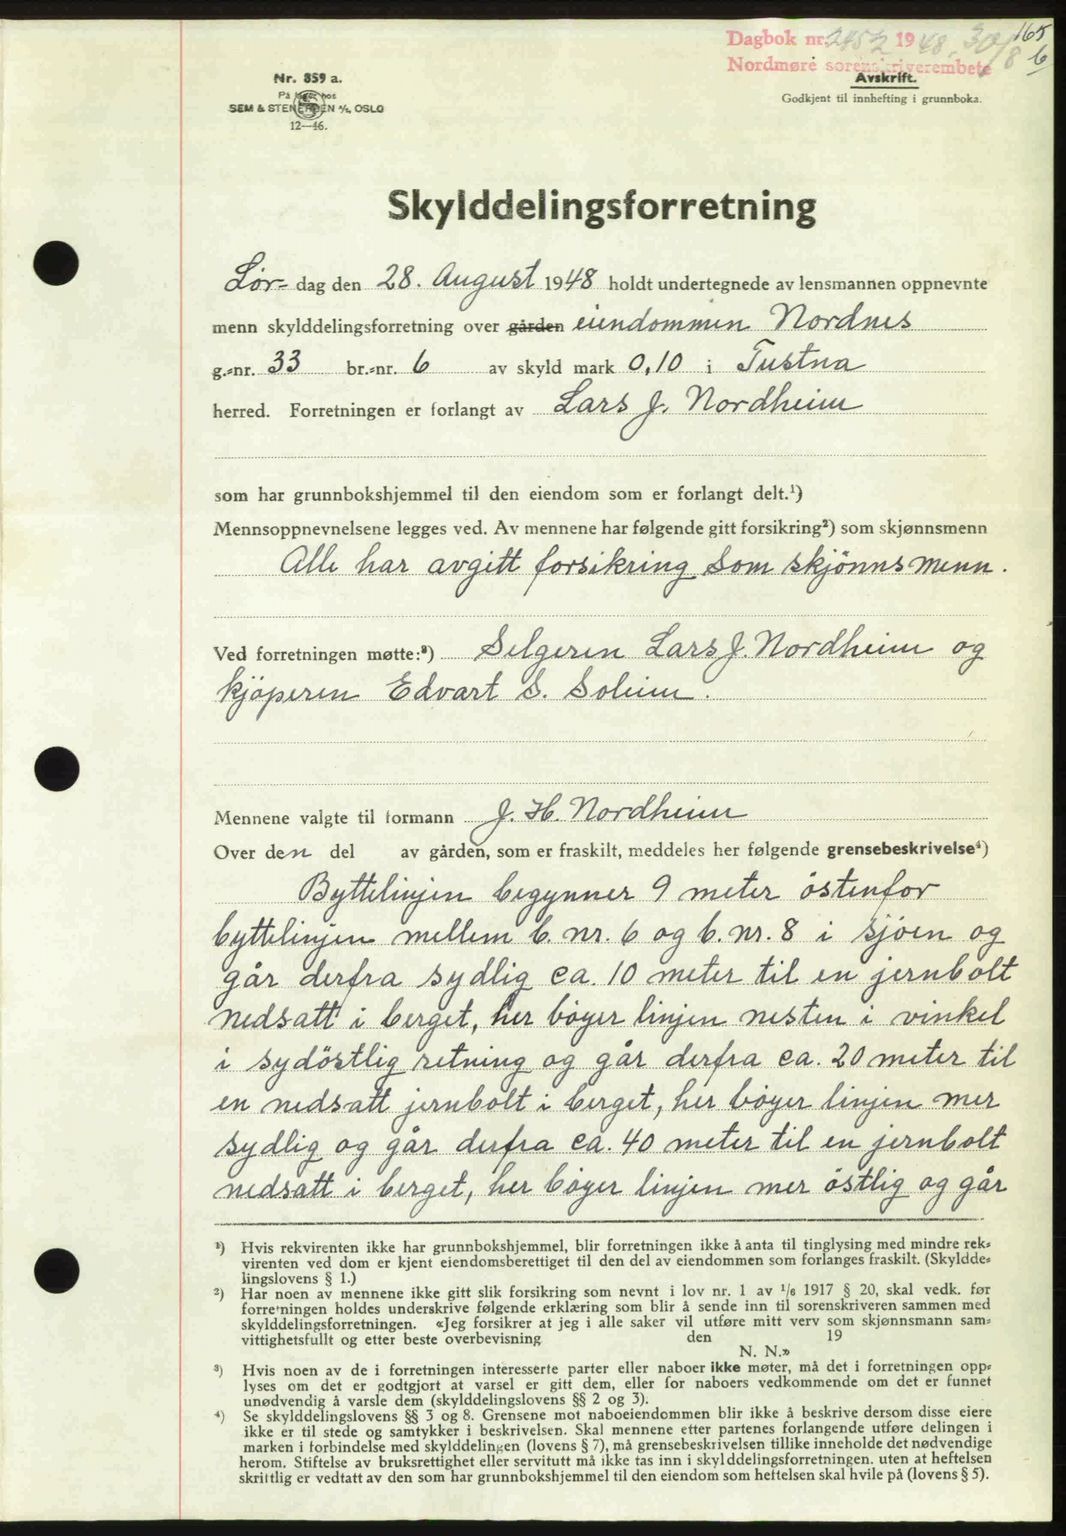 Dagbok nr. 2452 1948 30/8 165
Nordmøre sorenskriverembete 6
Avskrift.
Godkjent til innhefting i grunnboka.
Nr. 859 a.
På lager hos
SEM & STENERSEN A/S, OSLO
12—46.
Skylddelingsforretning
Lør- dag den 28. August 1948 holdt undertegnede av lensmannen oppnevnte
menn skylddelingsforretning over gården eiendommen Nordnes
g.-nr. 33 br.-nr. 6 av skyld mark 0,10 i Tustna
herred. Forretningen er forlangt av Lars J. Nordheim
som har grunnbokshjemmel til den eiendom som er forlangt delt.¹)
Mennsoppnevnelsene legges ved. Av mennene har følgende gitt forsikring²) som skjønnsmenn
Alle har avgitt forsikring som skjönnsmenn.
Ved forretningen møtte:³) Selgeren Lars J. Nordheim og
kjöperen Edvart S. Soleim.
Mennene valgte til formann J. H. Nordheim
Over den del av gården, som er fraskilt, meddeles her følgende grensebeskrivelse⁴)
Byttelinjen begynner 9 meter östenfor
byttelinjen mellem b. nr. 6 og b. nr. 8 i sjöen og
går derfra sydlig ca. 10 meter til en jernbolt
nedsatt i berget, her böyer linjen nesten i vinkel
i sydöstlig retning og går derfra ca. 20 meter til
en nedsatt jernbolt i berget, her böyer linjen mer
sydlig og går derfra ca. 40 meter til en jernbolt
nedsatt i berget, her böyer linjen mer östlig og går
¹) Hvis rekvirenten ikke har grunnbokshjemmel, blir forretningen ikke å anta til tinglysing med mindre rek-
virenten ved dom er kjent eiendomsberettiget til den del av eiendommen som forlanges fraskilt. (Skyldde-
lingslovens § 1.)
²) Har noen av mennene ikke gitt slik forsikring som nevnt i lov nr. 1 av 1/6 1917 § 20, skal vedk. før
forretningen holdes underskrive følgende erklæring som blir å sende inn til sorenskriveren sammen med
skylddelingsforretningen. «Jeg forsikrer at jeg i alle saker vil utføre mitt verv som skjønnsmann sam-
vittighetsfullt og etter beste overbevisning den 19
N. N.»
³) Hvis noen av de i forretningen interesserte parter eller naboer ikke møter, må det i forretningen opp-
lyses om det er godtgjort at varsel er gitt dem, eller for naboers vedkommende om det er funnet
unødvendig å varsle dem (skylddelingslovens §§ 2 og 3).
⁴) Se skylddelingslovens §§ 3 og 8. Grensene mot naboeiendommen blir ikke å beskrive dersom disse eiere
ikke er til stede og samtykker i beskrivelsen. Skal mennene etter partenes forlangende utføre delingen i
marken i forbindelse med skylddelingen (lovens § 7), må grensebeskrivelsen tillike inneholde det nødvendige
herom. Stiftelse av bruksrettighet eller servitutt må ikke tas inn i skylddelingsforretningen. uten at heftelsen
skriftlig er vedtatt av den som har grunnbokshjemmel til den eiendom som heftelsen skal hvile på (lovens § 5).